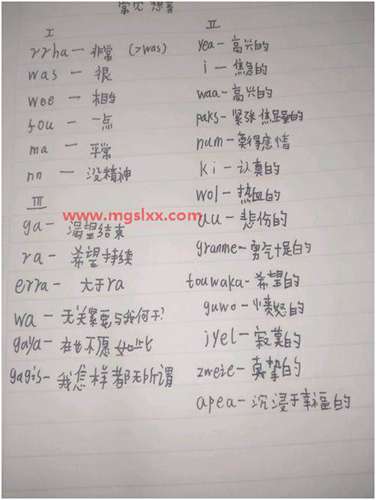 常见想音
I
rrha — 非常 (>was)
was — 很
wee — 相当
fou — 一点
ma — 平常
nn — 没精神
III
ga — 渴望结束
ra — 希望持续
erra — 大于ra
wa — 无关紧要与我何干?
gaya — 再也不愿如此
gagis — 我怎样都无所谓
II
yea — 高兴的
i — 焦急的
waa — 高兴的
paks — 紧张焦虑的
num — 莫得感情
ki — 认真的
wol — 热血的
uu — 悲伤的
granme — 勇气十足的
touwaka — 希望的
guwo — 愤怒的
jyel — 寂寞的
zweie — 真挚的
apea — 沉浸于幸福的
www.mgslxx.com